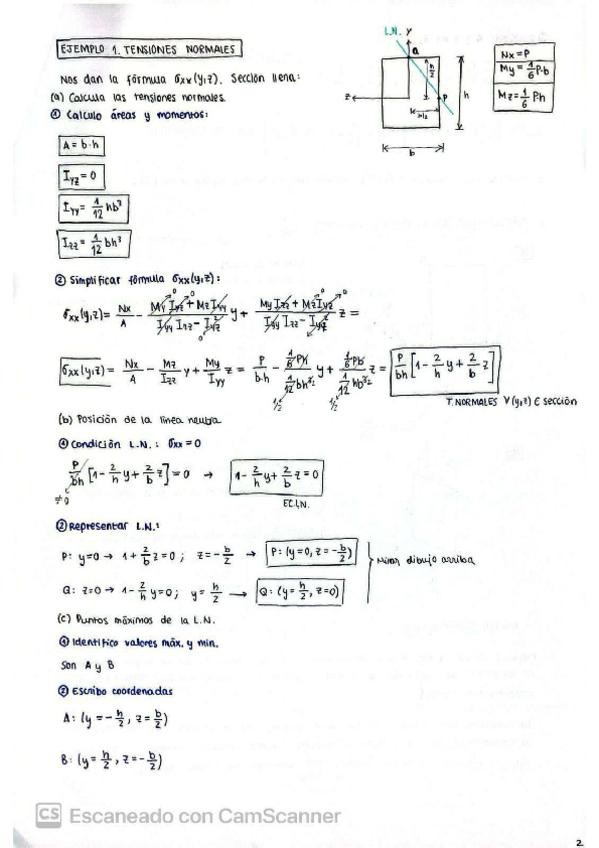 L.N.
y
a
EJEMPLO 1. TENSIONES NORMALES
Nx = P
My = 1/6 P·b
Mz = 1/6 P·h
z
h/2
h
P
b/2
b
Nos dan la fórmula σxx(y,z). Sección llena:
(a) Calcula las tensiones normales.
① Calculo áreas y momentos:
A = b·h
Iyz = 0
Iyy = 1/12 hb³
Izz = 1/12 bh³
② Simplificar fórmula σxx(y,z):
σxx(y,z) = Nx/A - (My Iyz + Mz Iyy)/(Iyy Izz - Iyz²) y + (My Izz + Mz Iyz)/(Iyy Izz - Iyz²) z =
σxx(y,z) = Nx/A - Mz/Izz y + My/Iyy z = P/b·h - (1/6 Ph)/(1/12 bh³) y + (1/6 Pb)/(1/12 hb³) z = P/bh [1 - 2/h y + 2/b z]
1/2 1/2
T. NORMALES ∀(y,z) ∈ sección
(b) Posición de la línea neutra
① Condición L.N.: σxx = 0
P/bh [1 - 2/h y + 2/b z] = 0 → 1 - 2/h y + 2/b z = 0
≠0
EC.L.N.
② Representar L.N.:
P: y=0 → 1 + 2/b z = 0 ; z = -b/2 → P: (y=0, z=-b/2)
Mirar dibujo arriba
Q: z=0 → 1 - 2/h y = 0 ; y = h/2 → Q: (y=h/2, z=0)
(c) Puntos máximos de la L.N.
① Identifico valores máx. y min.
Son A y B
② Escribo coordenadas
A: (y = -h/2, z = b/2)
B: (y = h/2, z = -b/2)
CS Escaneado con CamScanner
2